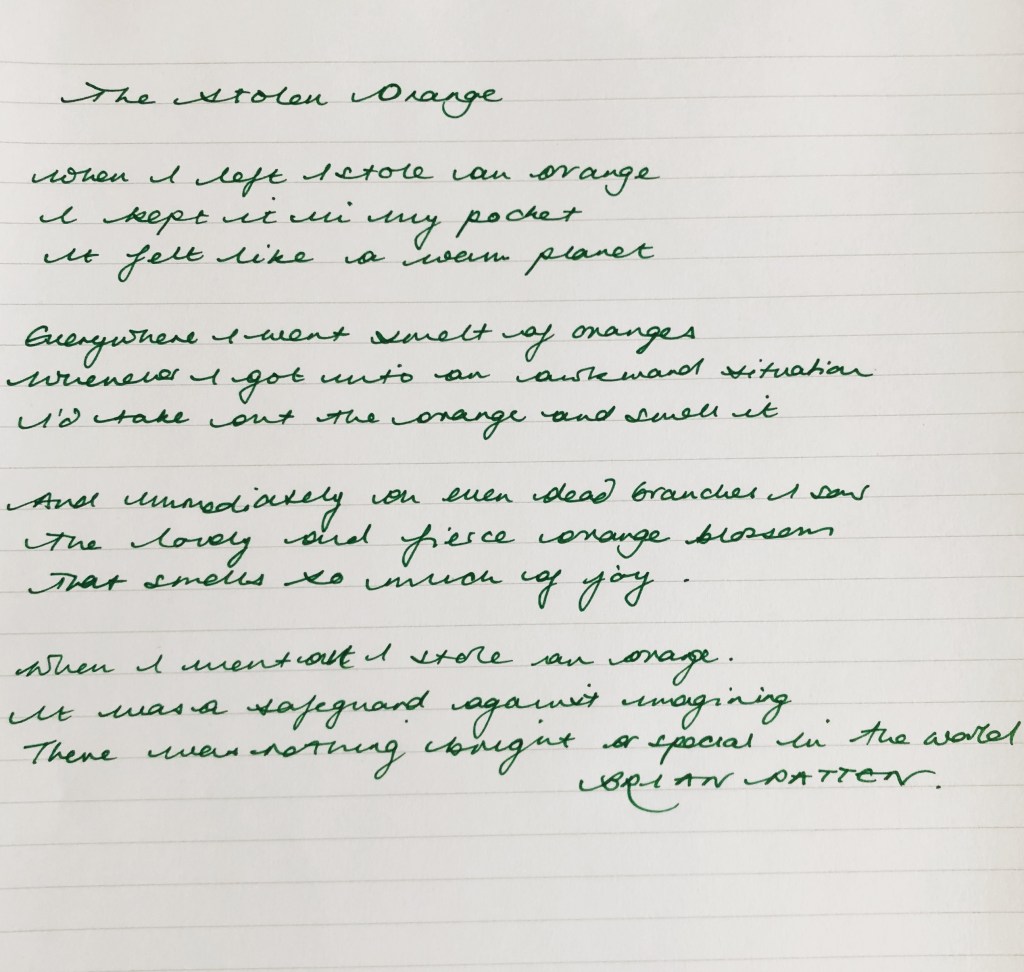 The Stolen Orange
When I left I stole an orange
I kept it in my pocket
It felt like a warm planet
Everywhere I went smelt of oranges
Whenever I got into an awkward situation
I'd take out the orange and smell it
And immediately on even dead branches I saw
The lovely and fierce orange blossom
That smells so much of joy.
When I went out I stole an orange.
It was a safeguard against imagining
There was nothing bright or special in the world
BRIAN PATTEN.